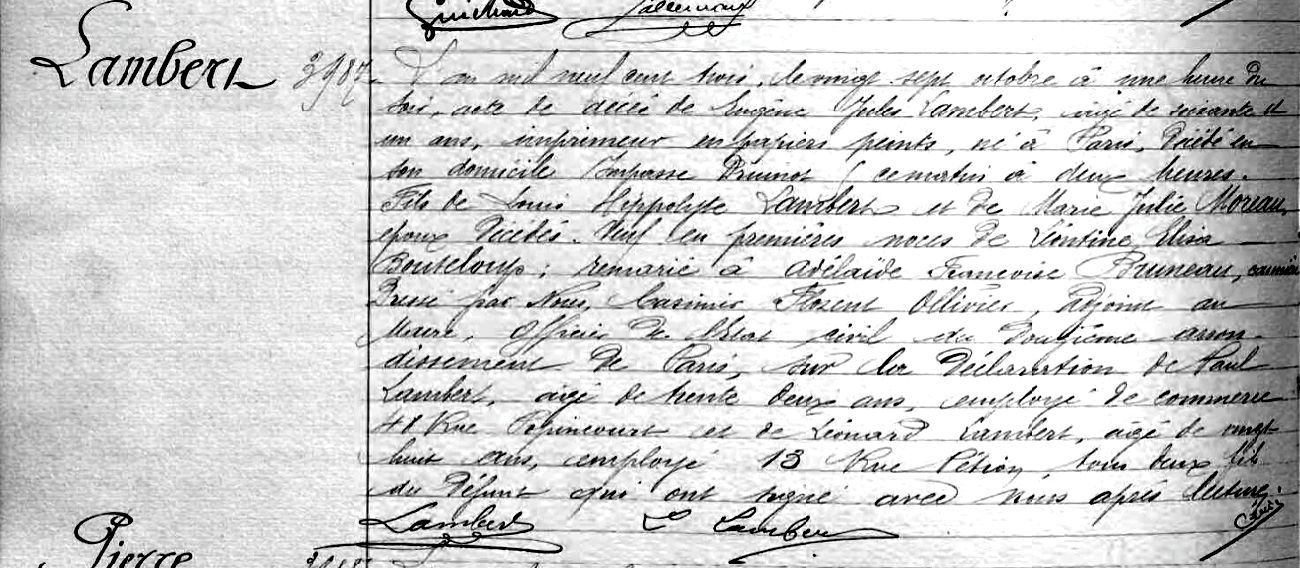 Guichard
Lambert 3987
L'an mil neuf cent trois, le vingt sept octobre à une heure du
soir, acte de décès de Eugène Jules Lambert, âgé de soixante et
un ans, imprimeur en papiers peints, né à Paris, décédé en
son domicile Impasse Druinot ce matin à deux heures.
Fils de Louis Hippolyte Lambert et de Marie Julie Moreau,
époux décédés. Veuf en premières noces de Léontine Elisa
Bouteloup; remarié à Adélaïde Françoise Bruneau,
Dressé par Nous, Casimir Florent Ollivier, adjoint au
Maire, officier de l'Etat civil du douzième arron-
dissement de Paris, sur la déclaration de Paul
Lambert, âgé de trente deux ans, employé de commerce
48 Rue Popincourt et de Léonard Lambert, âgé de vingt
huit ans, employé 13 Rue Pétion, tous deux fils
du défunt qui ont signé avec nous après lecture.
Lambert L Lambert
Pierre